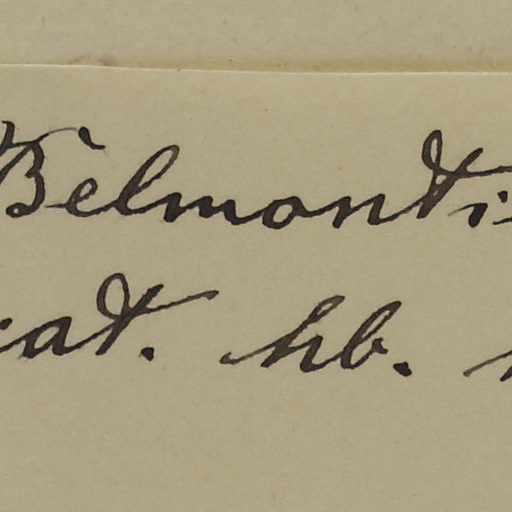 Belmonti
cat. hb.